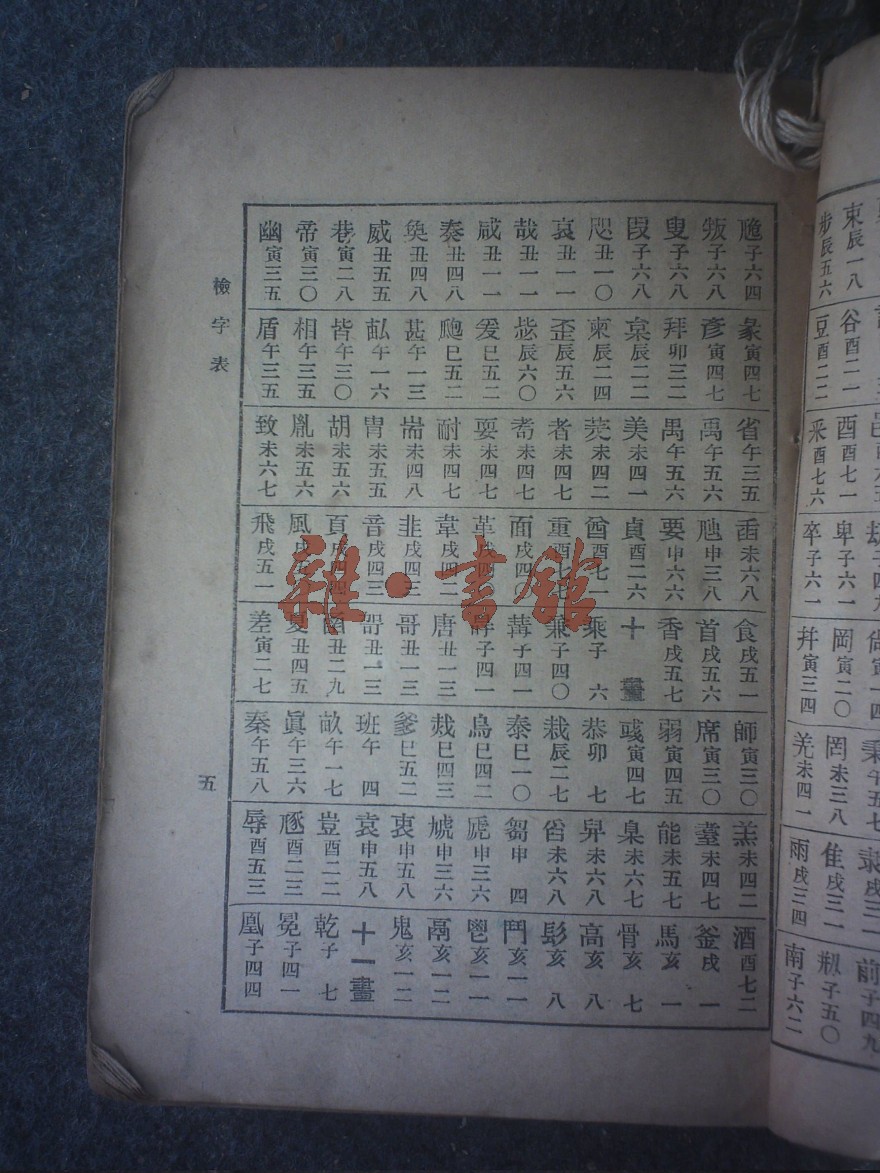 束辰一八
步辰五六
谷酉二一
豆酉二二
酉酉七一
釆酉七六
卑子六一
卒子六一
岡寅二〇
幷寅三四
罔未三八
羌未四一
隹戌三一
雨戌三四
前子四九
瓶子五〇
南子六二
脃子六四
叛子六八
叟子六八
叚子六八
咫丑一〇
哀丑一一
哉丑一一
咸丑一一
奏丑四八
奐丑四八
威丑五五
巷寅二八
帝寅三〇
幽寅三五
彖寅四七
彥寅四七
拜卯三二
枲辰二二
柬辰二四
歪辰五六
爰巳五二
瓟巳五二
甚午一三
畆午一六
皆午三〇
相午三五
盾午三五
省午三五
禹午五六
禺午五六
美未四一
羑未四二
者未四七
耇未四七
耍未四七
耐未四七
耑未四八
冑未五五
胡未五六
胤未五六
致未六七
臿未六八
虺申三八
要申六六
貞酉二六
酋酉七一
重酉七七
面戌四〇
革戌四
韋戌四二
韭戌四三
音戌四三
頁戌四四
風戌
飛戌五一
食戌五一
首戌五六
香戌五七
十畫
乘子六
兼子四〇
冓子四一
子四一
唐丑一三
哥丑一三
哿丑一三
圅丑二九
夏丑四五
差寅二七
師寅三〇
席寅三〇
弱寅四五
彧寅四七
恭卯七
栽辰二七
泰巳一〇
烏巳四二
烖巳四三
爹巳五二
班午四
畝午一七
眞午三六
秦午五八
羔未四二
耋未四七
能未五七
臬未六七
舁未六八
舀未六八
芻申四
虒申三六
虓申三六
衷申五八
袁申五八
豈酉二二
豗酉二三
辱酉五三
酒酉七二
釜戌一
馬亥一
骨亥七
高亥八
髟亥八
鬥亥一一
鬯亥一一
鬲亥一二
鬼亥一二
十一畫
乾子七
冕子四一
凰子四四
檢字表
五
雜·書館